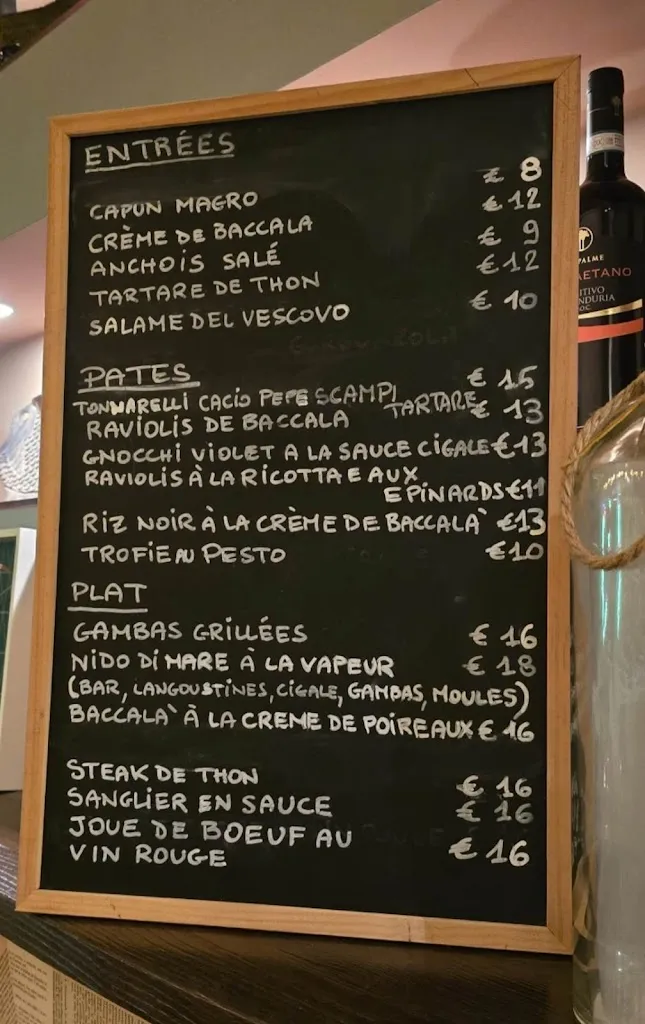 ENTRÉES
CAPUN MAGRO € 8
CRÈME DE BACCALA € 12
ANCHOIS SALÉ € 9
TARTARE DE THON €12
SALAME DEL VESCOVO € 10
PATES
TONNARELLI CACIO PEPE SCAMPI TARTARE € 15
RAVIOLIS DE BACCALA € 13
GNOCCHI VIOLET A LA SAUCE CIGALE €13
RAVIOLIS À LA RICOTTA E AUX
EPINARDS €11
RIZ NOIR À LA CRÈME DE BACCALA` €13
TROFIE AU PESTO €10
PLAT
GAMBAS GRILLÉES € 16
NIDO DI MARE À LA VAPEUR € 18
(BAR, LANGOUSTINES, CIGALE, GAMBAS, MOULES)
BACCALA` À LA CREME DE POIREAUX € 16
STEAK DE THON € 16
SANGLIER EN SAUCE € 16
JOUE DE BOEUF AU
VIN ROUGE € 16
PALME
AETANO
ITIVO
NDURIA